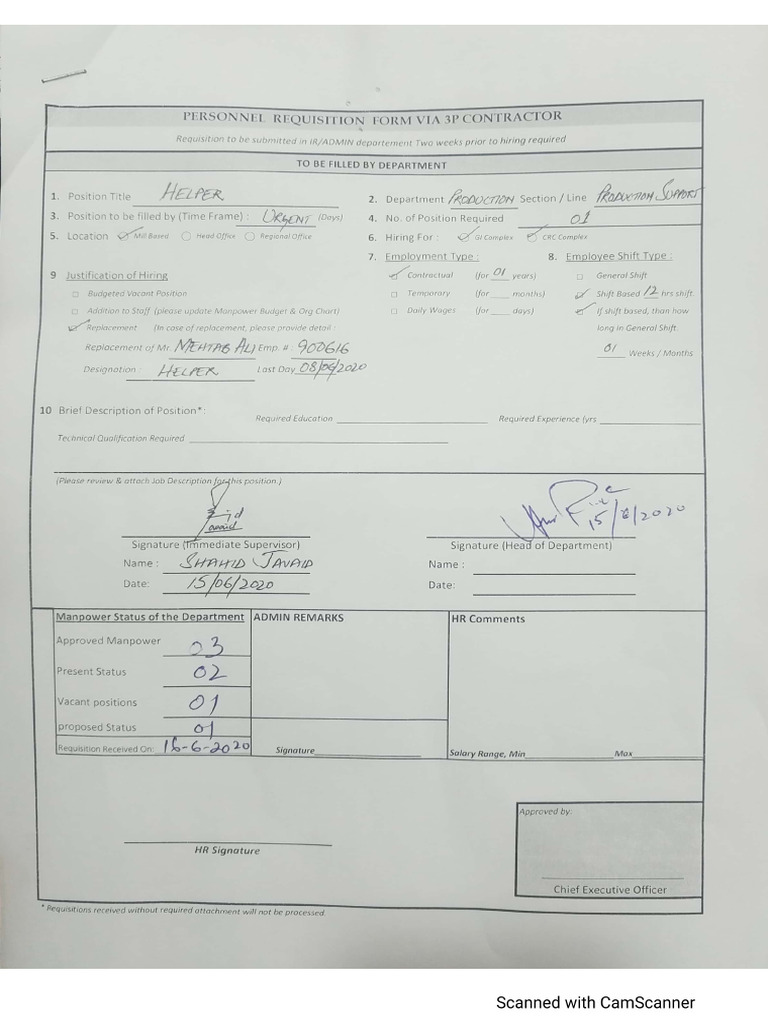 PERSONNEL REQUISITION FORM VIA 3P CONTRACTOR
Requisition to be submitted in IR/ADMIN departement Two weeks prior to hiring required
TO BE FILLED BY DEPARTMENT
1. Position Title HELPER 2. Department PRODUCTION Section / Line PRODUCTION SUPPORT
3. Position to be filled by (Time Frame) : URGENT (Days) 4. No. of Position Required 01
5. Location Mill Based Head Office Regional Office 6. Hiring For : GI Complex CRC Complex
7. Employment Type : 8. Employee Shift Type :
9 Justification of Hiring Contractual (for 01 years) General Shift
Budgeted Vacant Position Temporary (for ___ months) Shift Based 12 hrs shift.
Addition to Staff (please update Manpower Budget & Org Chart) Daily Wages (for ___ days) If shift based, than how
Replacement (In case of replacement, please provide detail : long in General Shift.
Replacement of Mr. MEHTAB ALI Emp. # : 900616 01 Weeks / Months
Designation : HELPER Last Day 08/06/2020
10 Brief Description of Position*: Required Education Required Experience (yrs
Technical Qualification Required
(Please review & attach Job Description for this position.)
15/6/2020
Signature (Immediate Supervisor) Signature (Head of Department)
Name : SHAHID JAVAID Name :
Date: 15/06/2020 Date:
Manpower Status of the Department ADMIN REMARKS HR Comments
Approved Manpower 03
Present Status 02
Vacant positions 01
proposed Status 01
Requisition Received On: 16-6-2020 Signature Salary Range, Min Max
Approved by:
HR Signature
Chief Executive Officer
* Requisitions received without required attachment will not be processed.
Scanned with CamScanner